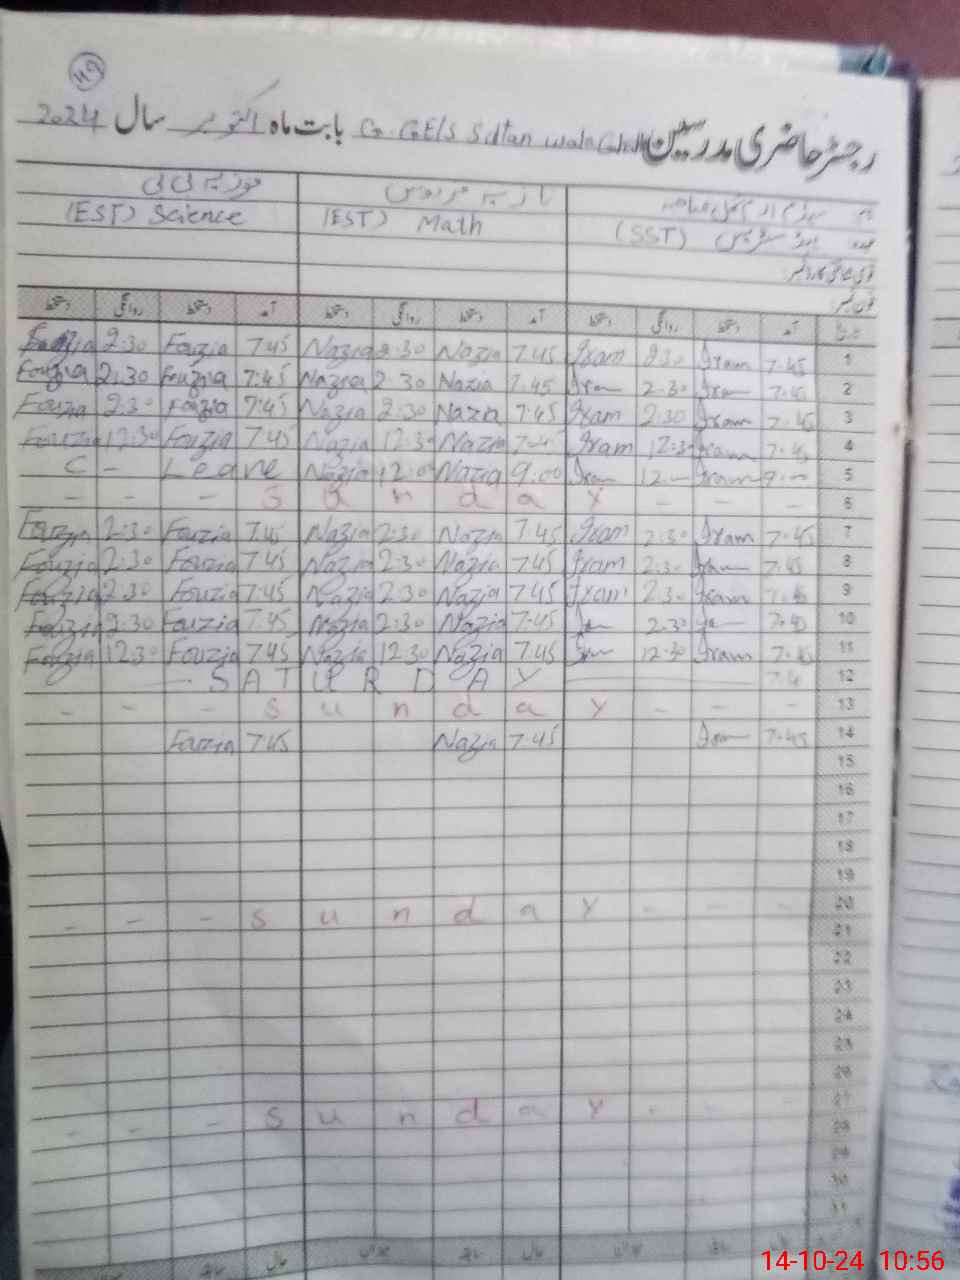 49
رجسٹر حاضری مدرسین G. GELS Sultan wala بابت ماہ اکتوبر سال 2024
نازیہ فردوس فوزیہ بی بی
عہدہ ہیڈ مسٹریس (SST) (EST) Math (EST) Science
تاریخ آمد دستخط روانگی دستخط آمد دستخط روانگی دستخط آمد دستخط روانگی دستخط
1 7.45 Iram 2.30 Iram 7.45 Nazia 2.30 Nazia 7.45 Fouzia 2:30 Fouzia
2 7.45 Iram 2.30 Iram 7.45 Nazia 2.30 Nazia 7:45 Fouzia 2:30 Fouzia
3 7.45 Iram 2.30 Iram 7.45 Nazia 2:30 Nazia 7:45 Fouzia 2:30 Fouzia
4 7.45 Iram 12.30 Iram Nazia 12:30 Nazia 7.45 Fouzia 12:30 Fouzia
5 Iram Iram 9.00 Nazia 12:0 Nazia C - Leave
6 - - - S u n d a y - - -
7 7.45 Iram 2.30 Iram 7.45 Nazia 2:30 Nazia 7.45 Fouzia 2:30 Fouzia
8 7.45 Iram 2.30 Iram 7.45 Nazia 2:30 Nazia 7.45 Fouzia 2:30 Fouzia
9 7.45 Iram 2.30 Iram 7.45 Nazia 2:30 Nazia 7.45 Fouzia 2:30 Fouzia
10 Iram 2.30 Iram 7.45 Nazia 2:30 Nazia 7.45 Fouzia 2:30 Fouzia
11 7.45 Iram 12.30 Iram 7.45 Nazia 12.30 Nazia 7.45 Fouzia 12:30 Fouzia
12 - S A T U R D A Y
13 - - - S u n d a y - - -
14 7.45 Iram 7.45 Nazia 7.45 Fouzia
15
16
17
18
19
20 - - - S u n d a y - - -
21
22
23
24
25
26
27 - - - S u n d a y - - -
28
29
30
31
14-10-24 10:56